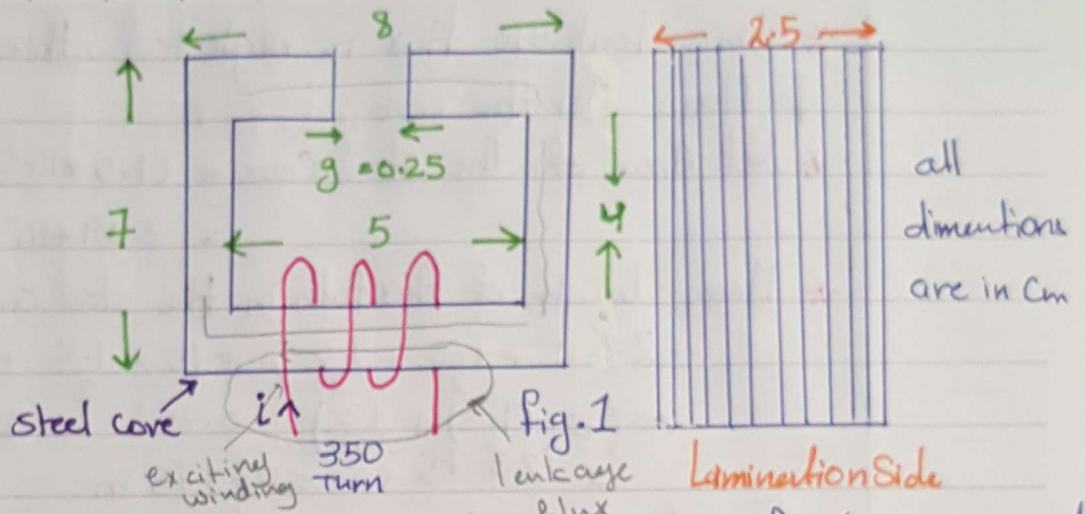 8
2.5
g = 0.25
7
5
4
all
dimentions
are in Cm
steel core
i
fig.1
exciting
winding
350
Turn
leakage
flux
Lamination Side